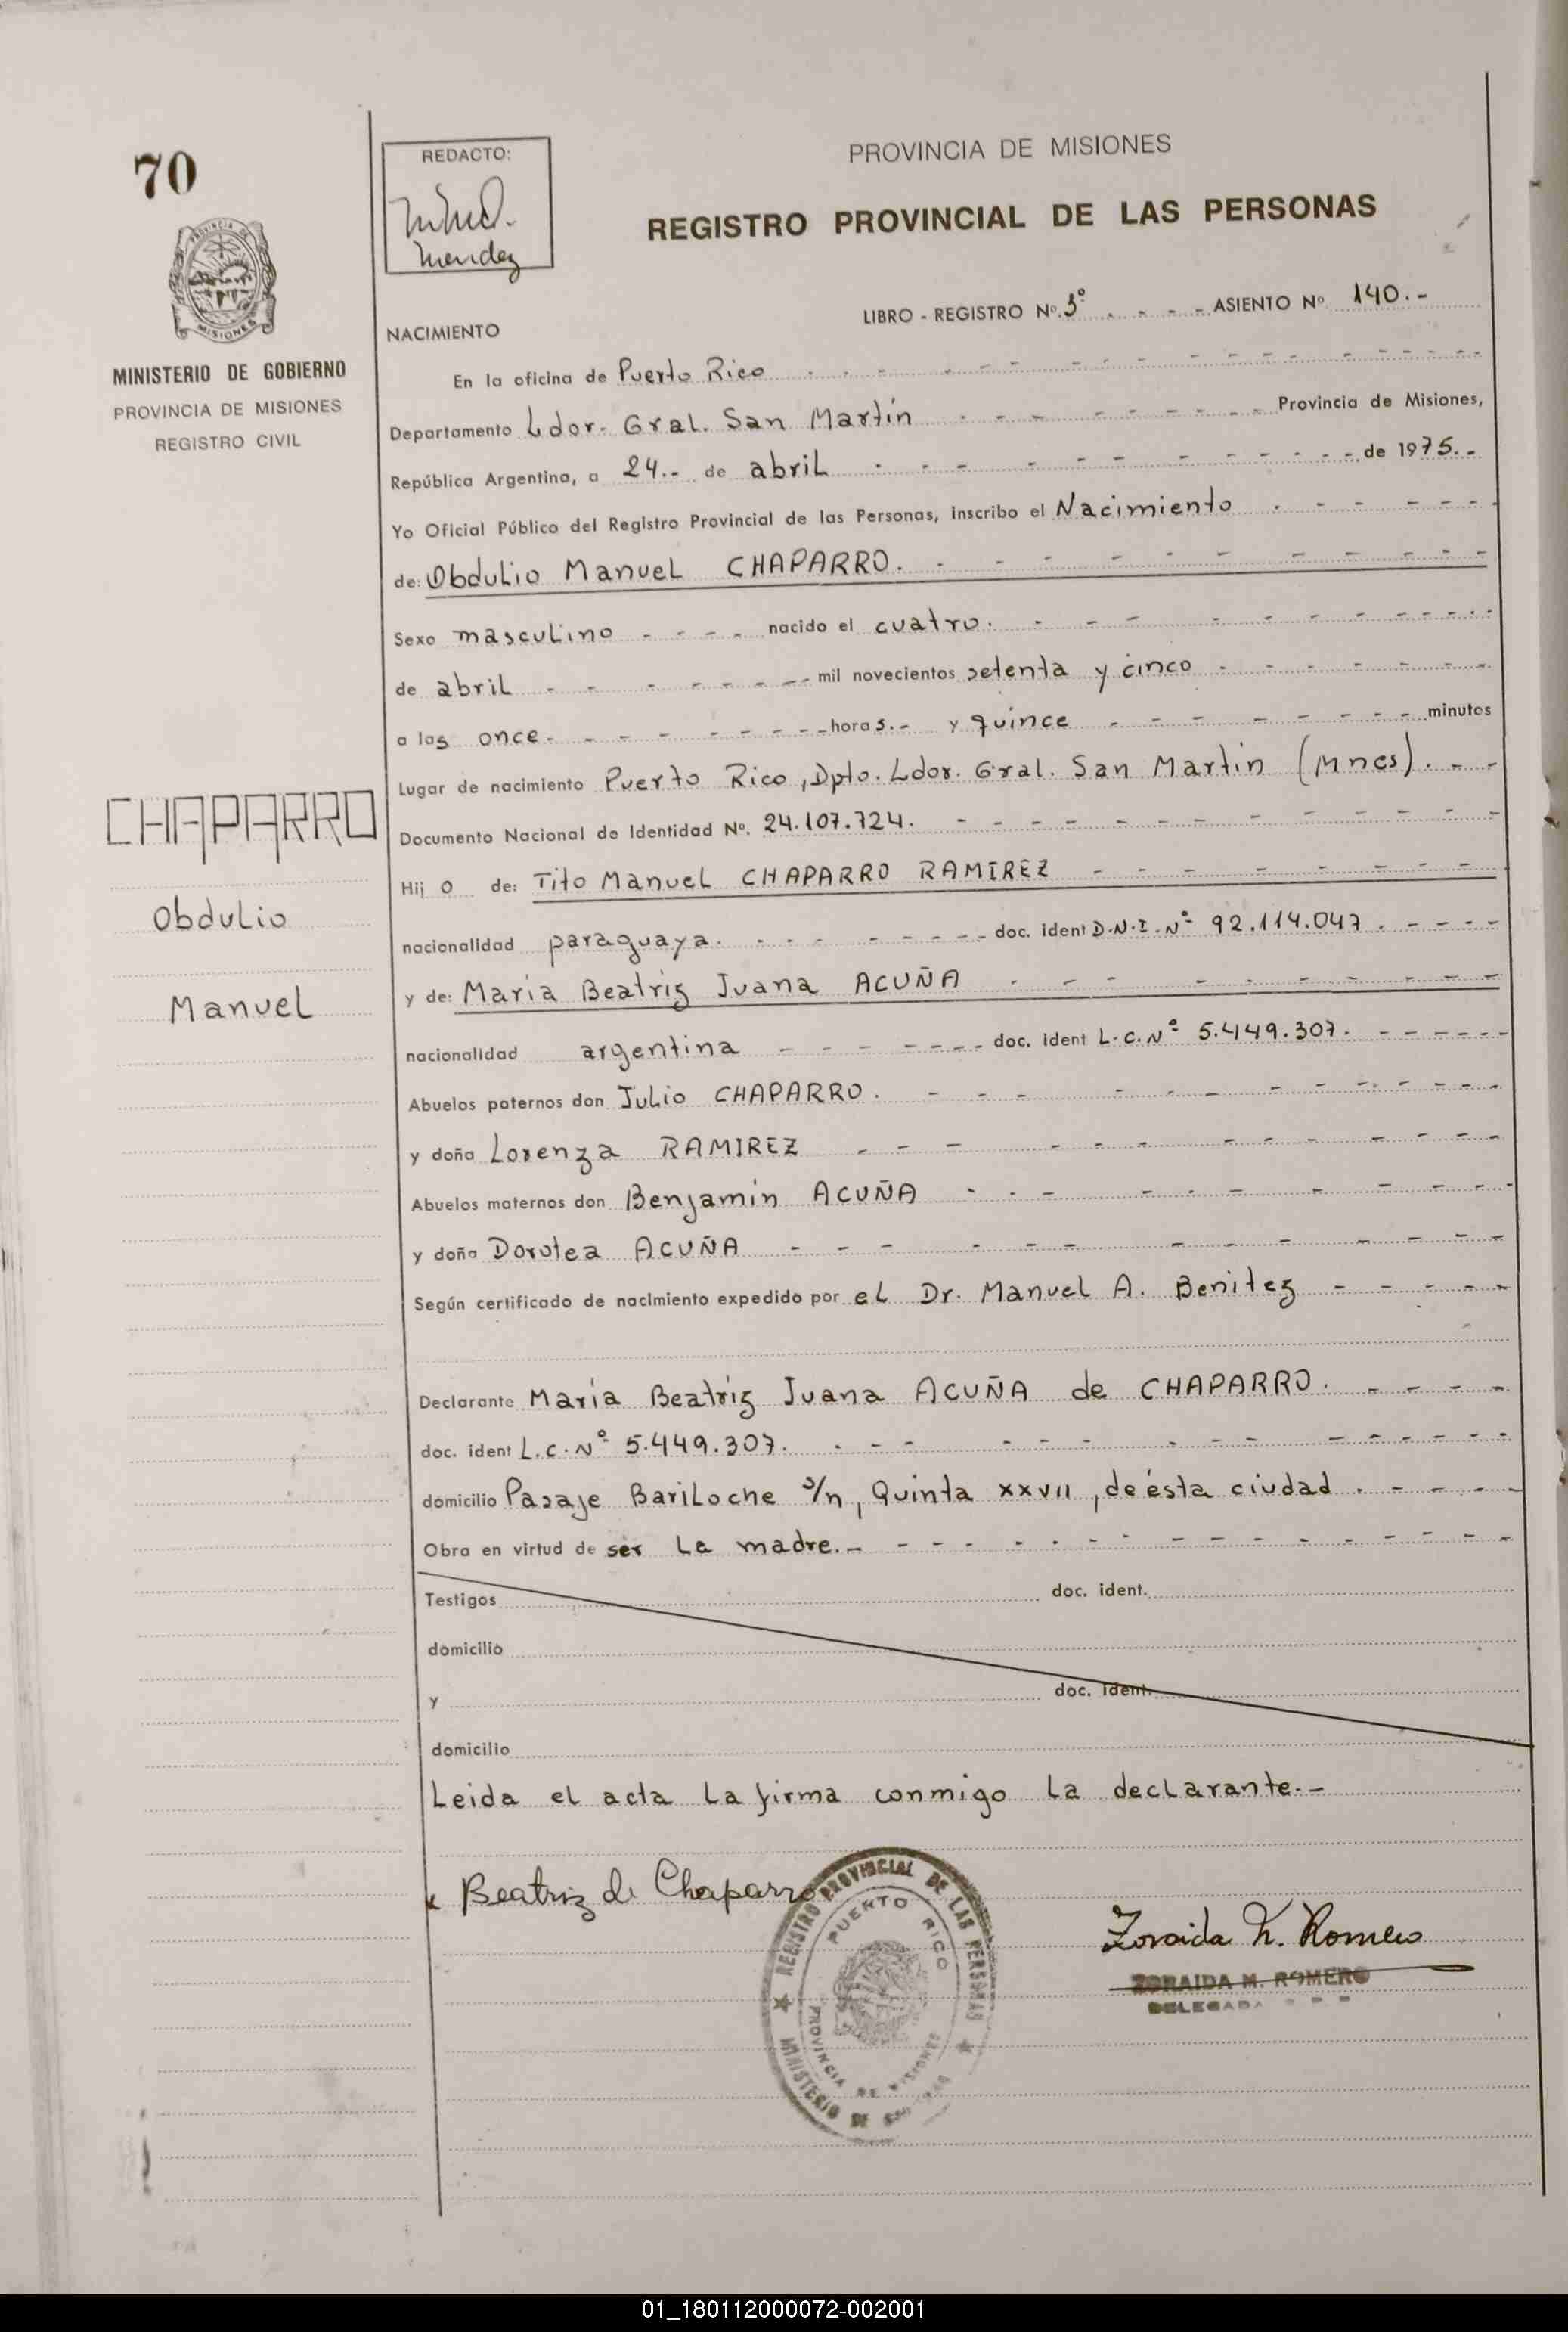 70
MISIONES
MINISTERIO DE GOBIERNO
PROVINCIA DE MISIONES
REGISTRO CIVIL
CHAPARRO
Obdulio
Manuel
REDACTO:
Mendez
PROVINCIA DE MISIONES
REGISTRO PROVINCIAL DE LAS PERSONAS
LIBRO - REGISTRO Nº. 3º - - - - ASIENTO Nº 140.-
NACIMIENTO
En la oficina de Puerto Rico
Departamento Ldor. Gral. San Martín Provincia de Misiones,
República Argentina, a 24.- de abril de 1975.-
Yo Oficial Público del Registro Provincial de las Personas, inscribo el Nacimiento
de: Obdulio Manuel CHAPARRO.
Sexo masculino nacido el cuatro.
de abril mil novecientos setenta y cinco
a las once. horas.- y quince minutos
Lugar de nacimiento Puerto Rico, Dpto. Ldor. Gral. San Martín (Mnes).
Documento Nacional de Identidad Nº. 24.107.724.
Hijo de: Tito Manuel CHAPARRO RAMIREZ
nacionalidad paraguaya. doc. ident D.N.I. Nº 92.114.047.
y de: María Beatriz Juana ACUÑA
nacionalidad argentina doc. ident L.C. Nº 5.449.307.
Abuelos paternos don Julio CHAPARRO.
y doña Lorenza RAMIREZ
Abuelos maternos don Benjamín ACUÑA
y doña Dorotea ACUÑA
Según certificado de nacimiento expedido por el Dr. Manuel A. Benitez
Declarante María Beatriz Juana ACUÑA de CHAPARRO.
doc. ident L.C. Nº 5.449.307.
domicilio Pasaje Bariloche s/n, Quinta XXVII, de ésta ciudad.
Obra en virtud de ser la madre.-
Testigos doc. ident.
domicilio
y doc. ident.
domicilio
Leida el acta la firma conmigo la declarante.-
Beatriz de Chaparro
REGISTRO PROVINCIAL DE LAS PERSONAS
PUERTO RICO
PROVINCIA DE MISIONES
MINISTERIO DE
Zoraida M. Romero
ZORAIDA M. ROMERO
DELEGADA
01_180112000072-002001